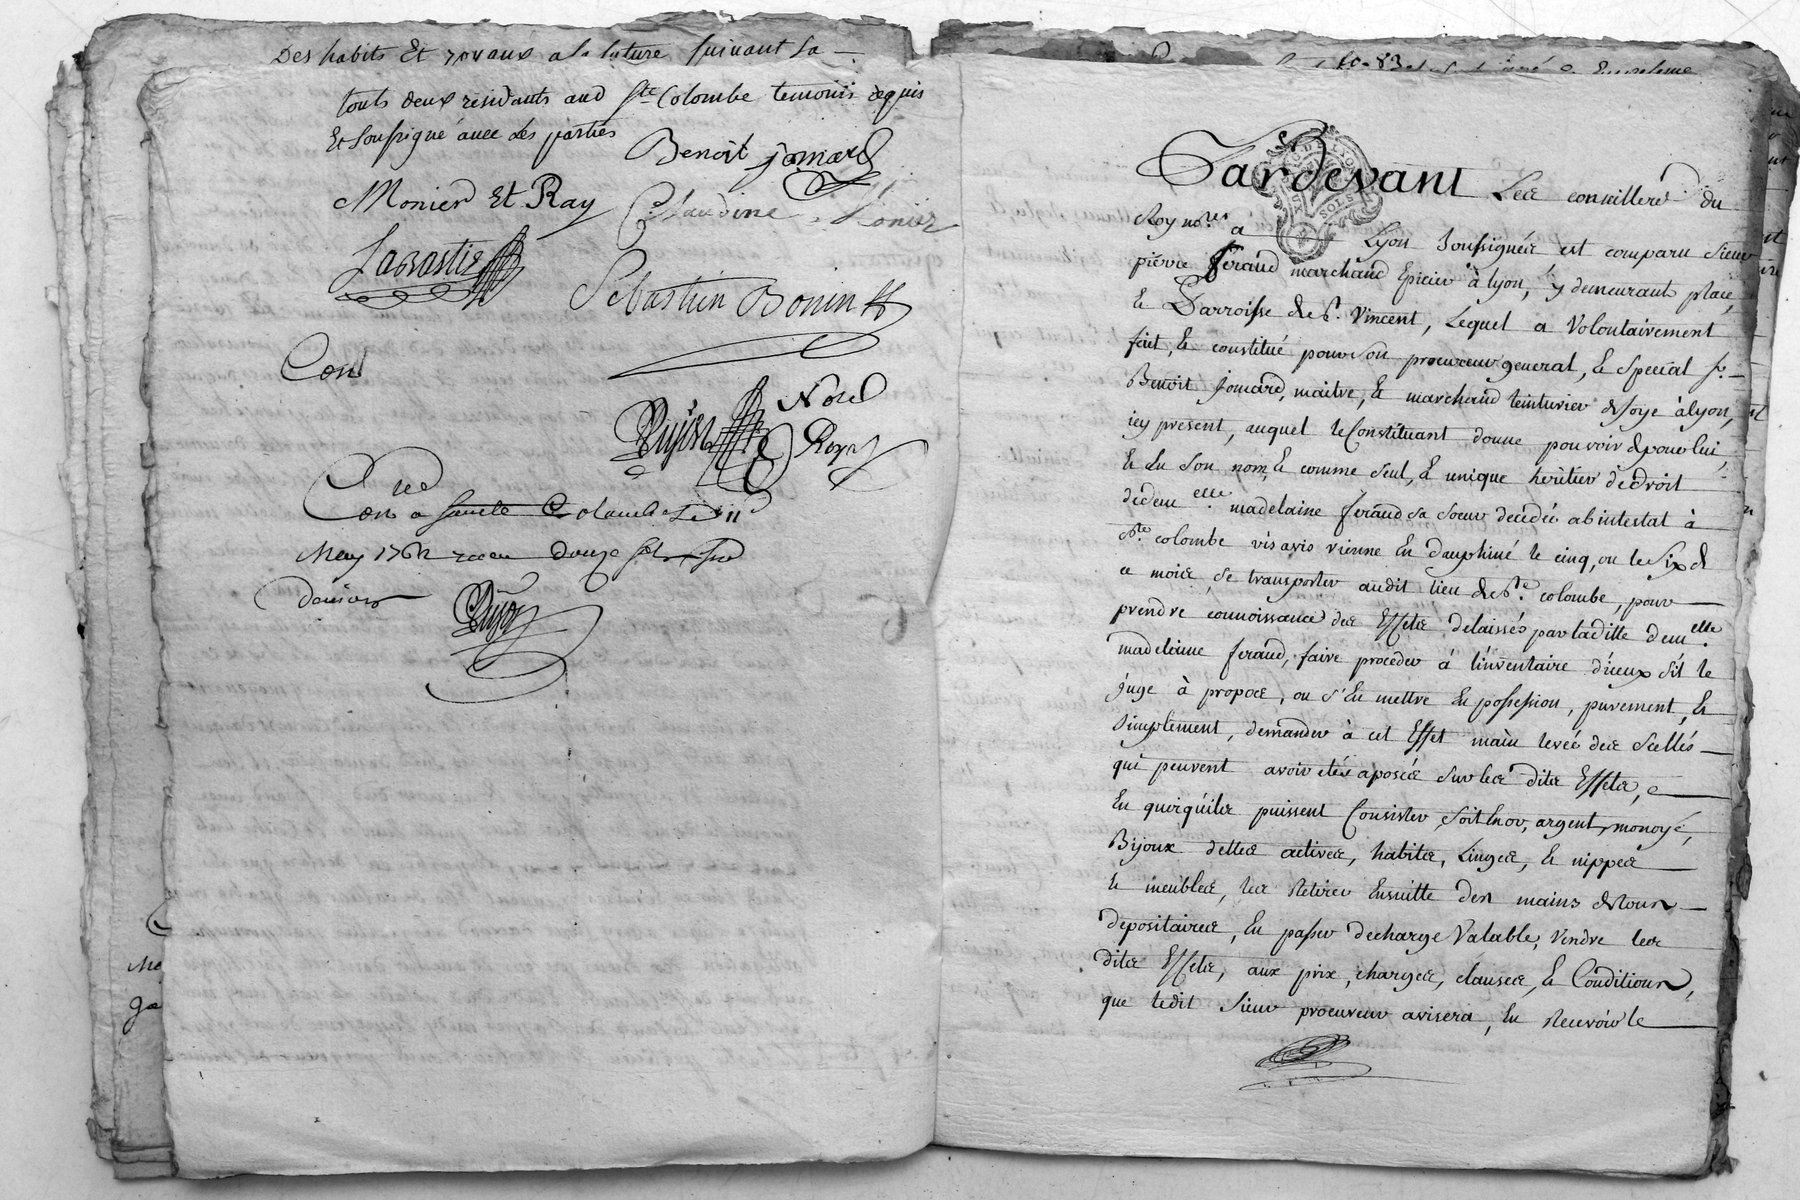 Des habits Et royaux a la future suivant sa
touts deux residants aud Ste Colombe temoins requis
Et Soussigné avec les parties
Benoit jomard
Monier Et Ray
Claudine Monier
Labastie
Sebastien Bonin
Con
Noel
Dujon
Roy
Con a Sainte Colombe Le 11
May 1762 receu douze sols
Dujon
Pardevant Les conseillers du
Roy nores. a Lyon soussignés est comparu sieur
pierre feraud marchand Epicier à lyon, y demeurant place,
& Parroisse de St. Vincent, Lequel a Volontairement
fait, & constitué pour son procureur general, & special sr.
Benoit Jomard, maitre, & marchand teinturier de soye à lyon,
icy present, auquel le Constituant donne pouvoir de pour lui,
& En Son nom, & comme seul, & unique hèritier de droit
de demelle. madelaine feraud sa soeur decedée abintestat à
Ste. colombe vis avis vienne En dauphiné le cinq, ou le Six de
ce mois de se transporter audit lieu de Ste. colombe, pour
prendre connoissance des Effets delaissés par ladille demelle.
madelaine feraud, faire proceder à linventaire d'iceux s'il le
juge à propos, ou s'En mettre En possession, purement, &
simplement, demander à cet Effet main levée des scellés
qui peuvent avoir etés aposés sur les dits Effets,
En quoi qu'ils puissent Consister, soit En or, argent monoyé,
Bijoux dettes actives, habits, Linges, & nippes
& meubles, les Retirer Ensuitte des mains de tous
depositaires, En passer decharge Valable, Vendre les
dits Effets, aux prix, charges, clauses, & Conditions,
que ledit sieur procureur avisera, En Recevoir le